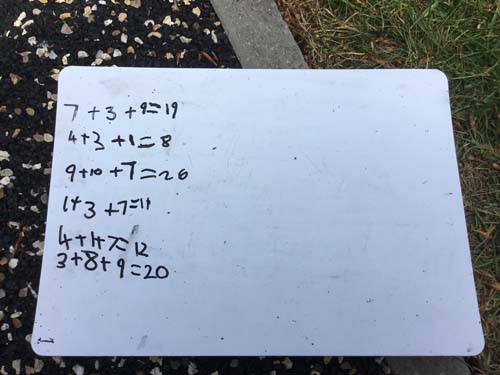 7+3+9=19
4+3+1=8
9+10+7=26
1+3+7=11
4+1+7=12
3+8+9=20